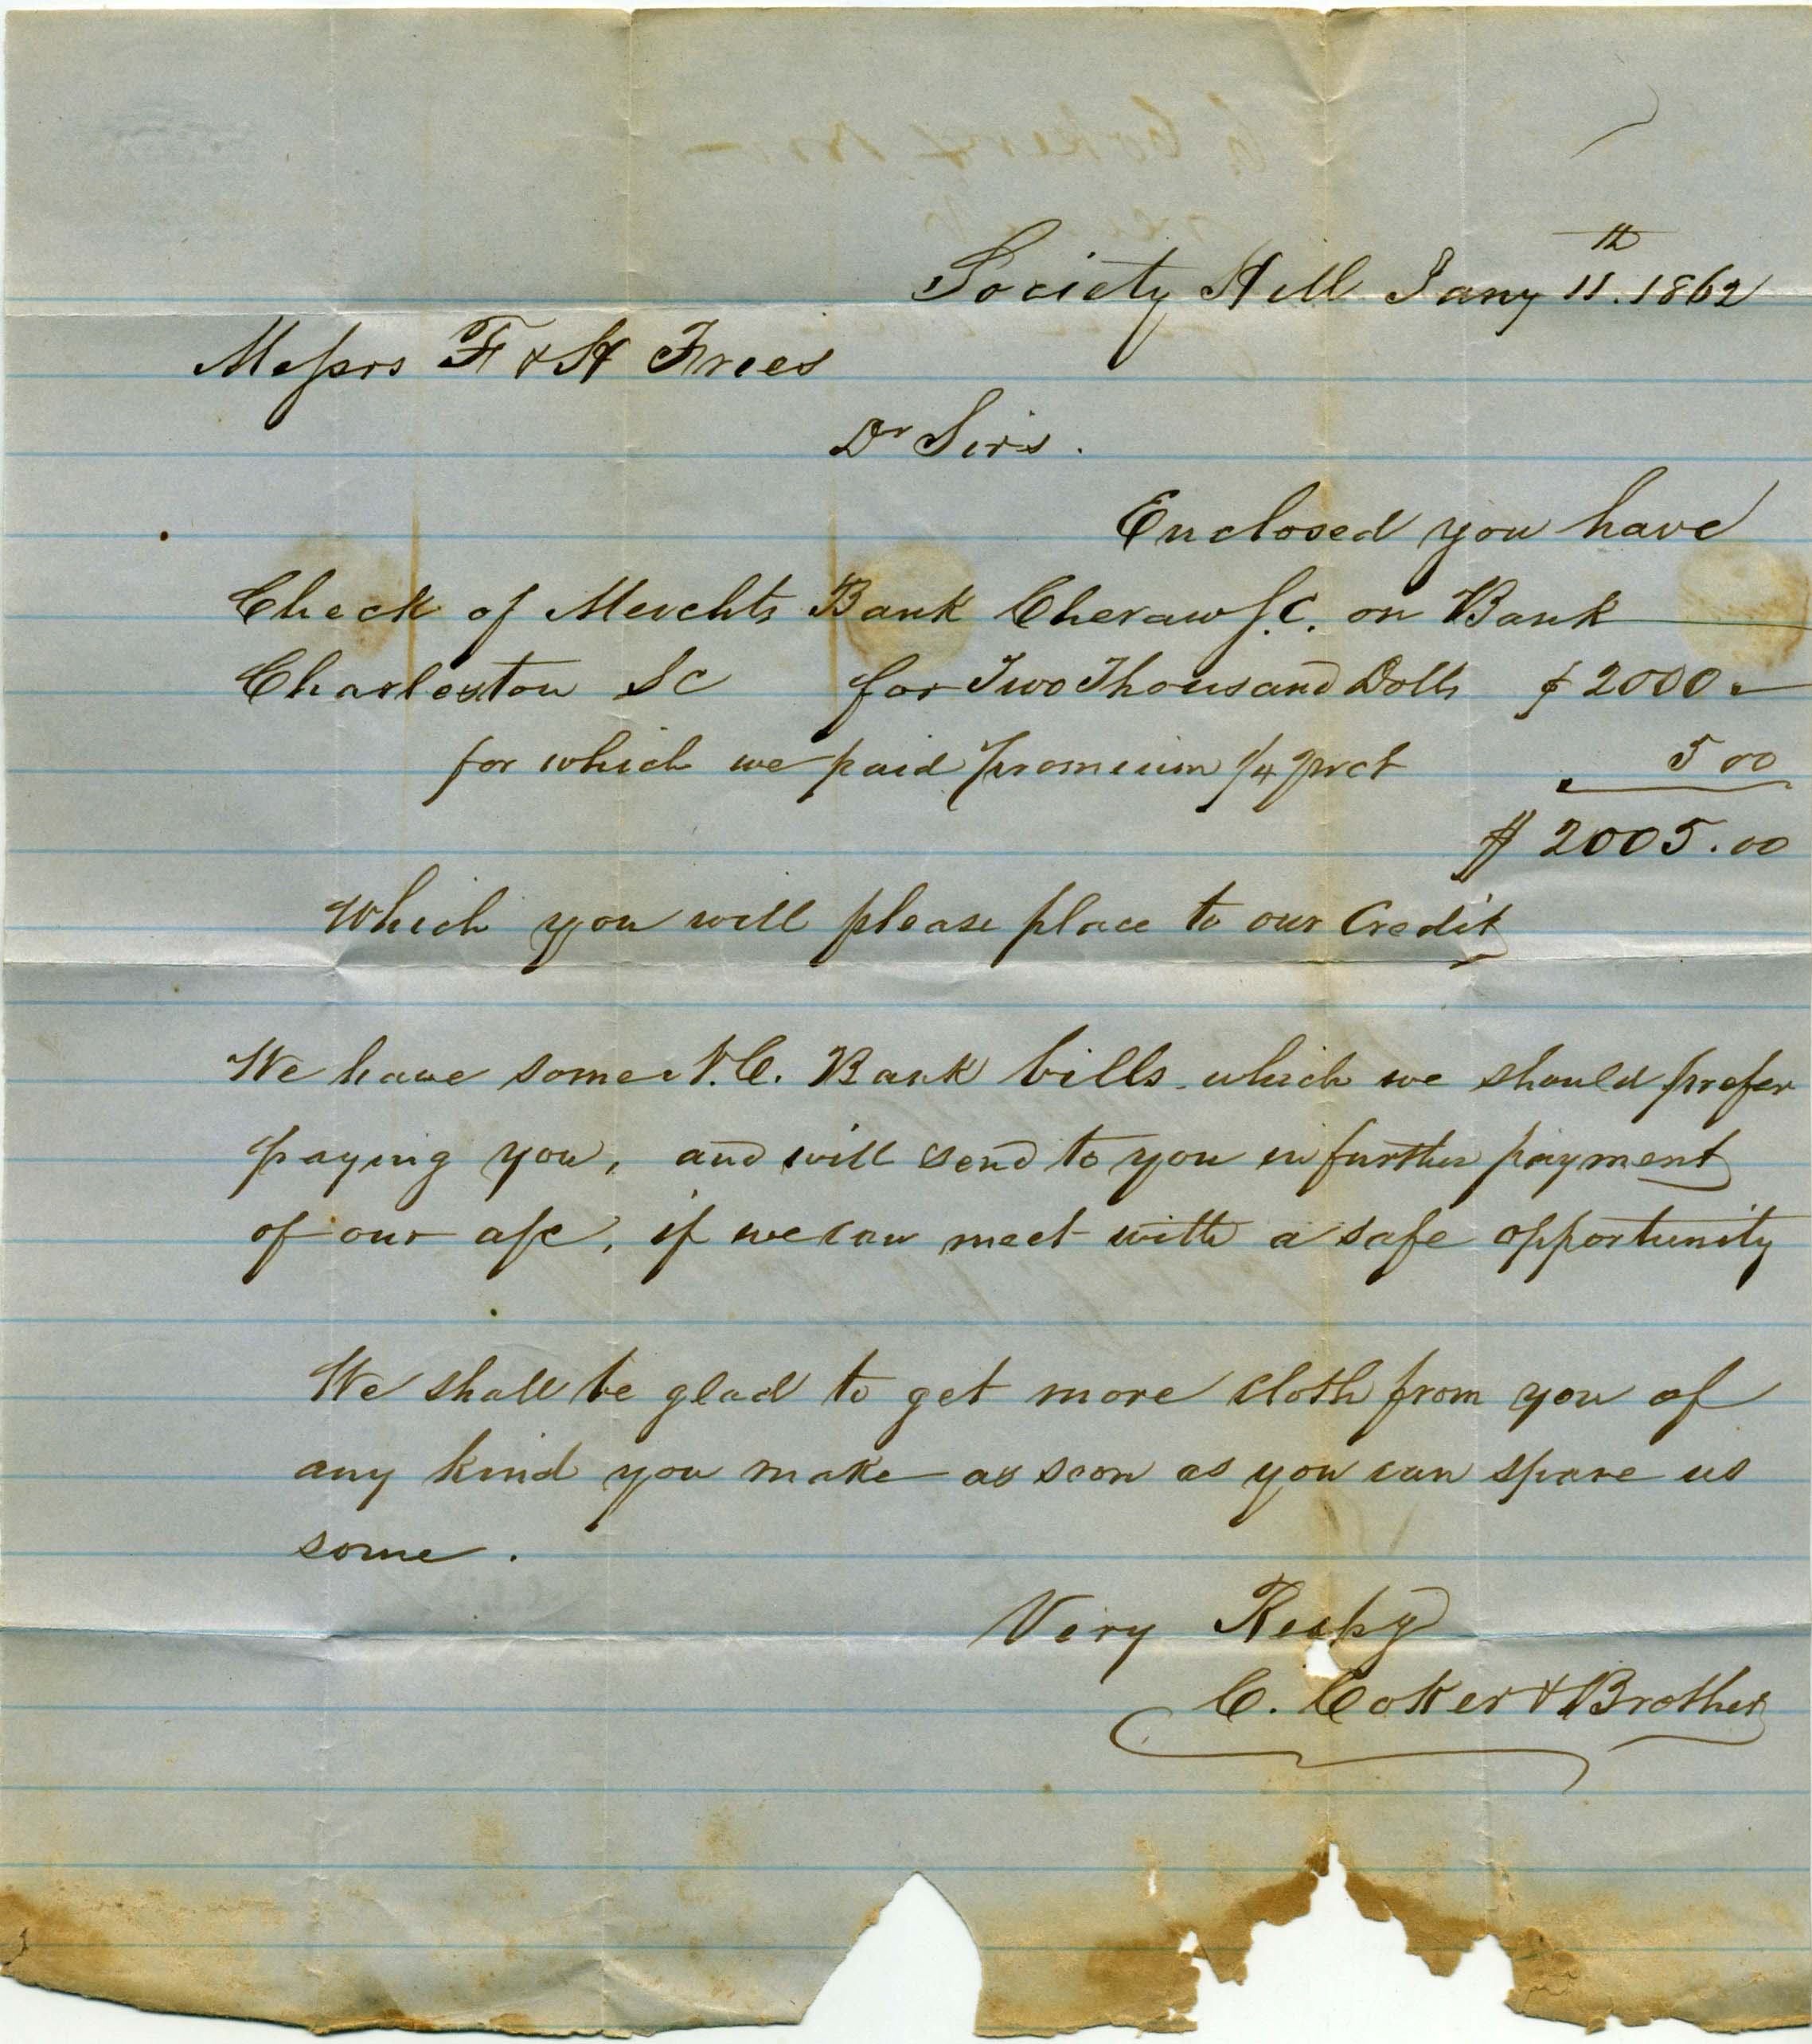 Society Hill Jany 11th. 1862
Messrs F & H Frees
Dr Sirs.
Enclosed you have
Check of Merchts Bank Cheraw S.C. on Bank
Charleston SC for Two Thousand Dolls $2000.—
for which we paid premium 1/4 prct 5 00
$2005.00
Which you will please place to our Credit
We have some N.C. Bank bills which we should prefer
paying you, and will send to you in further payment
of our a/c, if we can meet with a safe opportunity
We shall be glad to get more cloth from you of
any kind you make as soon as you can spare us
some.
Very Respy
C. Coker & Brother